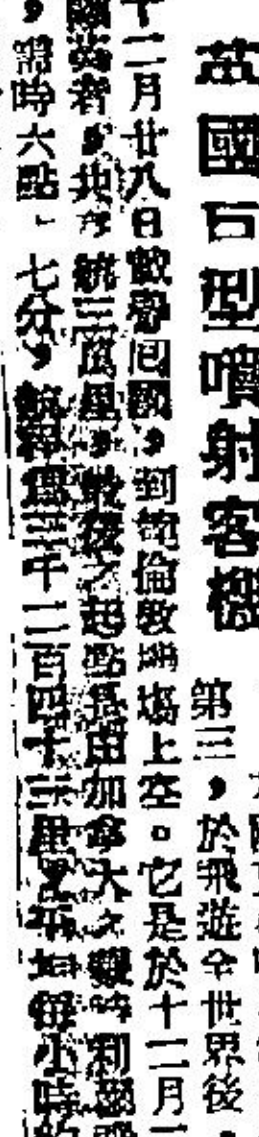 英國巨型噴射客機
第三，於飛遊全世界後，
十二月廿八日載譽回國，到倫敦機場上空。它是於十二月
英者，共航三萬里，最後之起點是由加拿大之利
，需時六點、七分，航程為三千二百四十三里又平均每小時約